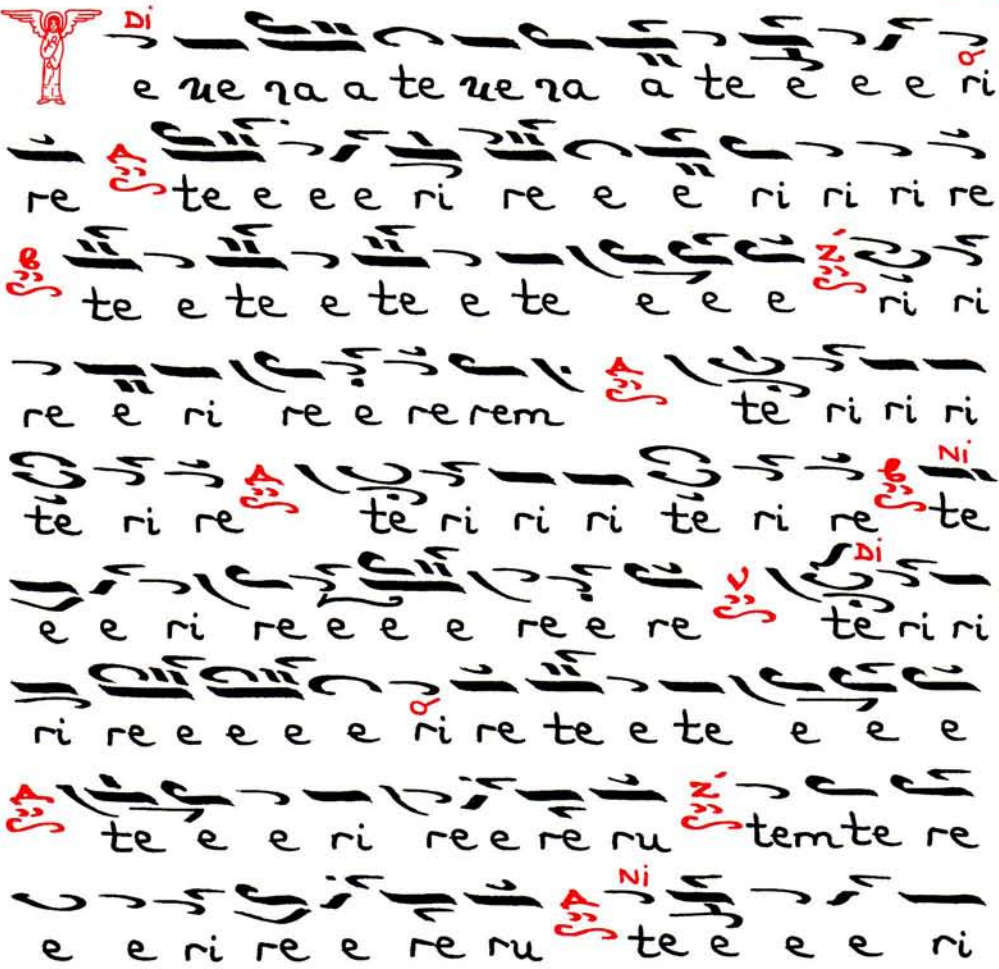 Di
e ne na a te ne na a te e e e ri
re te e e e ri re e e ri ri ri re
te e te e te e te e e e Z' ri ri
re e ri re e re rem te ri ri ri
Ni
te ri re te ri ri ri te ri re te
Di
e e ri re e e e re e re te ri ri
ri re e e e e ri re te e te e e e
te e e ri re e re ru Z' tem te re
Ni
e e ri re e re ru te e e e ri